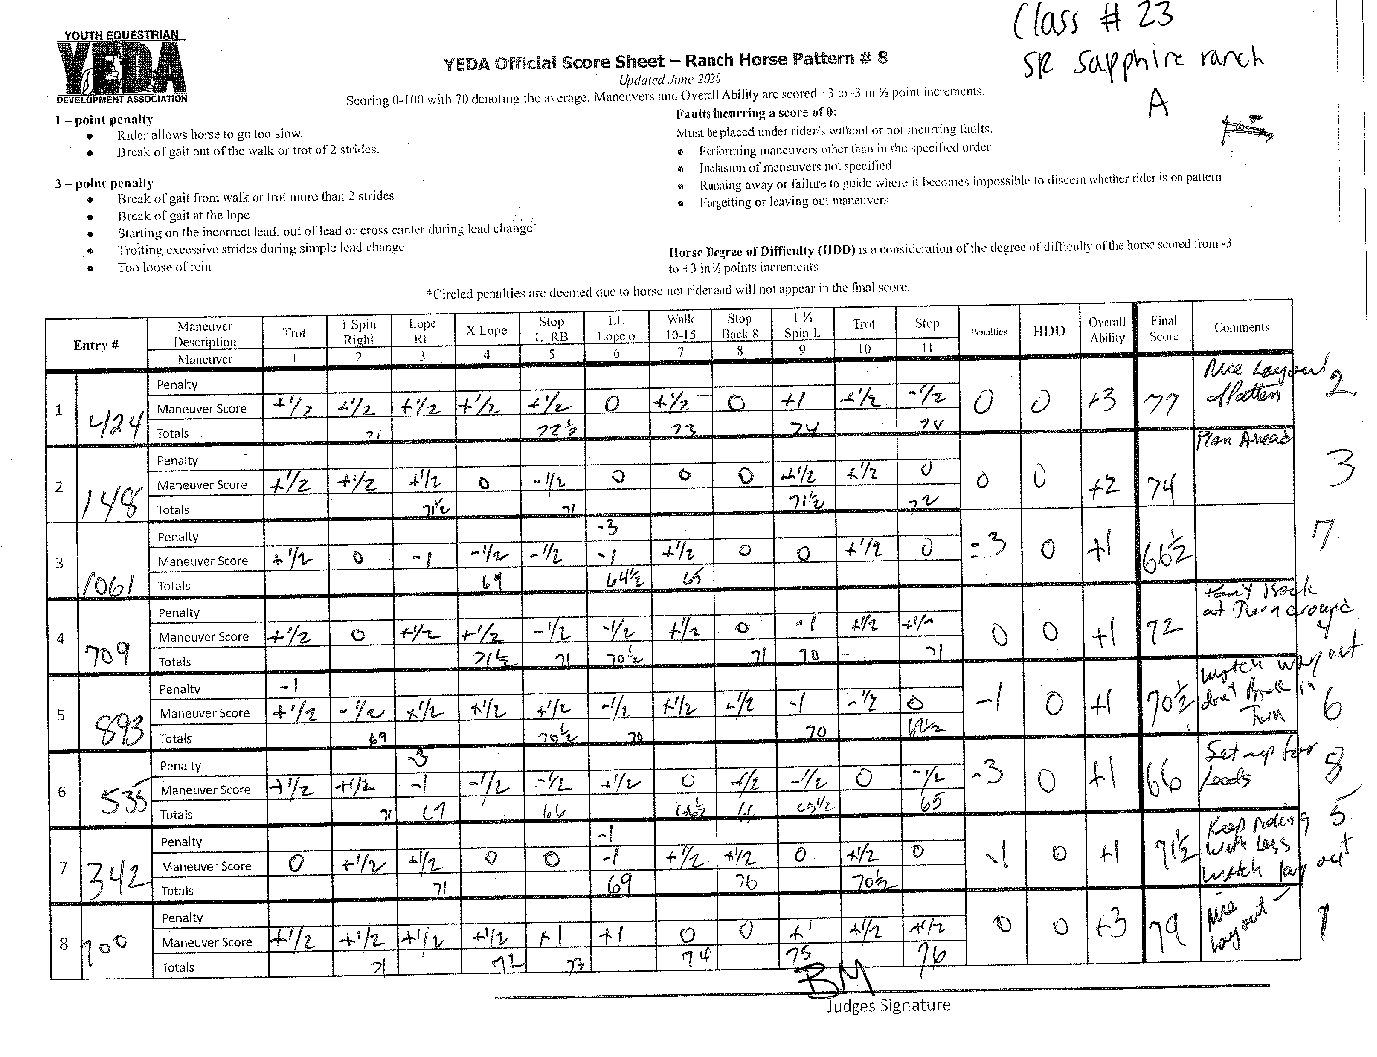 Class # 23
SR Sapphire ranch
A
YOUTH EQUESTRIAN
YEDA
DEVELOPMENT ASSOCIATION
YEDA Official Score Sheet – Ranch Horse Pattern # 8
Updated June 2025
Scoring 0-100 with 70 denoting the average. Maneuvers and Overall Ability are scored -3 to +3 in ½ point increments.
1 – point penalty
● Rider allows horse to go too slow.
● Break of gait out of the walk or trot of 2 strides.
3 – point penalty
● Break of gait from walk or trot more than 2 strides
● Break of gait at the lope
● Starting on the incorrect lead, out of lead or cross canter during lead change
● Trotting excessive strides during simple lead change
● Too loose of rein
Faults incurring a score of 0:
Must be placed under rider's without or not incurring faults.
● Performing maneuvers other than in the specified order
● Inclusion of maneuvers not specified
● Running away or failure to guide where it becomes impossible to discern whether rider is on pattern
● Forgetting or leaving out maneuvers
Horse Degree of Difficulty (HDD) is a consideration of the degree of difficulty of the horse scored from -3
to +3 in ½ points increments
*Circled penalties are deemed due to horse not rider and will not appear in the final score.
Entry # Maneuver Description Trot 1 Spin Right Lope RL X Lope Stop L RB LL Lope o Walk 10-15 Stop Back 8 1 ½ Spin L Trot Stop Penalties HDD Overall Ability Final Score Comments
Maneuver 1 2 3 4 5 6 7 8 9 10 11
1 424 Penalty
Maneuver Score +1/2 +1/2 +1/2 +1/2 +1/2 0 +1/2 0 +1 +1/2 -1/2 0 0 +3 77 Nice Layout of Pattern 2
Totals 71 72½ 73 74 74
2 148 Penalty Plan Ahead
Maneuver Score +1/2 +1/2 +1/2 0 -1/2 0 0 0 +1/2 +1/2 0 0 0 +2 74 3
Totals 71½ 71 71½ 72
3 1061 Penalty -3
Maneuver Score +1/2 0 -1 -1/2 -1/2 -1 +1/2 0 0 +1/2 0 -3 0 +1 66½ 7
Totals 69 64½ 65
4 709 Penalty
Maneuver Score +1/2 0 +1/2 +1/2 -1/2 -1/2 +1/2 0 -1 +1/2 +1/2 0 0 +1 72 Don't Back at Turn around 4
Totals 71½ 71 70½ 71 70 71
5 893 Penalty -1
Maneuver Score +1/2 -1/2 +1/2 +1/2 +1/2 -1/2 +1/2 +1/2 -1 -1/2 0 -1 0 +1 70½ watch way out don't Back in Turn 6
Totals 69 70½ 70 70 69½
6 535 Penalty -3
Maneuver Score +1/2 +1/2 -1 -1/2 -1/2 +1/2 0 +1/2 -1/2 0 -1/2 -3 0 +1 66 Set-up for leads 8
Totals 71 67 66 66½ 66 65½ 65
7 342 Penalty -1
Maneuver Score 0 +1/2 +1/2 0 0 -1 +1/2 +1/2 0 +1/2 0 -1 0 +1 71½ Keep riding with Legs watch lay out 5
Totals 71 69 70 70½
8 700 Penalty
Maneuver Score +1/2 +1/2 +1/2 +1/2 +1 +1 0 0 +1 +1/2 +1/2 0 0 +3 79 Nice layout – 1
Totals 71 72 73 74 75 76
BM
Judges Signature